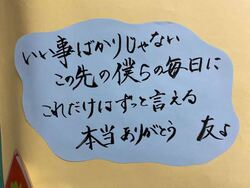 いい事ばかりじゃない
この先の僕らの毎日に
これだけはずっと言える
本当ありがとう 友よ